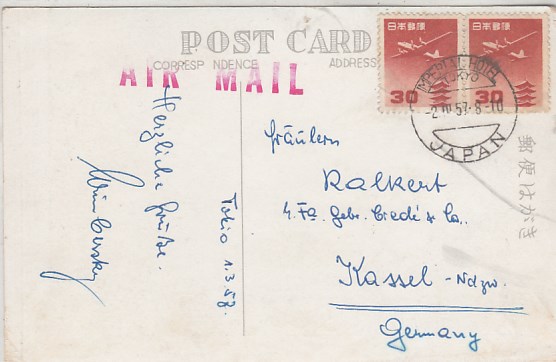 POST CARD
CORRESP NDENCE
ADDRESS
AIR MAIL
日本郵便
30
日本郵便
30
IMPERIAL HOTEL
TOKYO
-2.IV.57.8-10
JAPAN
郵便はがき
Herzliche Grüße.
Tokio 1.3.58.
Fräulein
Ralkert
4. Fa. Gebr. Credé & Co.
Kassel - Ndzw.
Germany